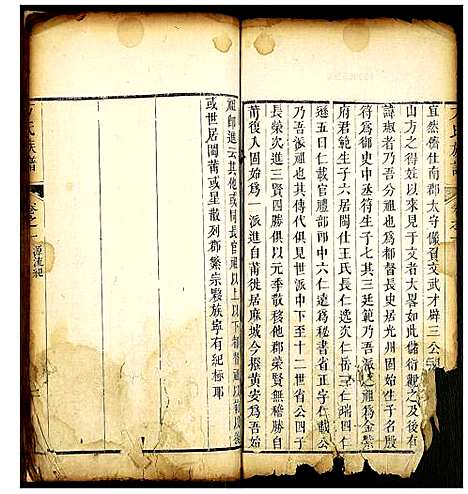 宜然儕仕南郡太守儼贊文武才辟三公
山方之得姓以來見于文者大畧如此儲衍觀之
諱琡者乃吾分祖也為都督長史居光州始生子
符為御史中丞符生子七其三廷範乃吾派之祖為金紫
府君範生子六居閩仕王氏長仁逸次仁岳三仁瑞四仁
遜五日仁載官禮部郎中六仁遠官秘書省正字仁載公
乃吾祖也其傳代俱見世派中下至十二世省公四子
長榮次進三賢四勝俱以元季散移他郡榮賢無稽勝自
莆後人固始為一派進自莆徙居麻城今撥黃安為吾始
祖郎進云其他或同長官祖以上以下都官祖以後
或世居閩莆或星散列郡繁宗夥族寧有紀極耶
方氏族譜
卷之一
源流紀